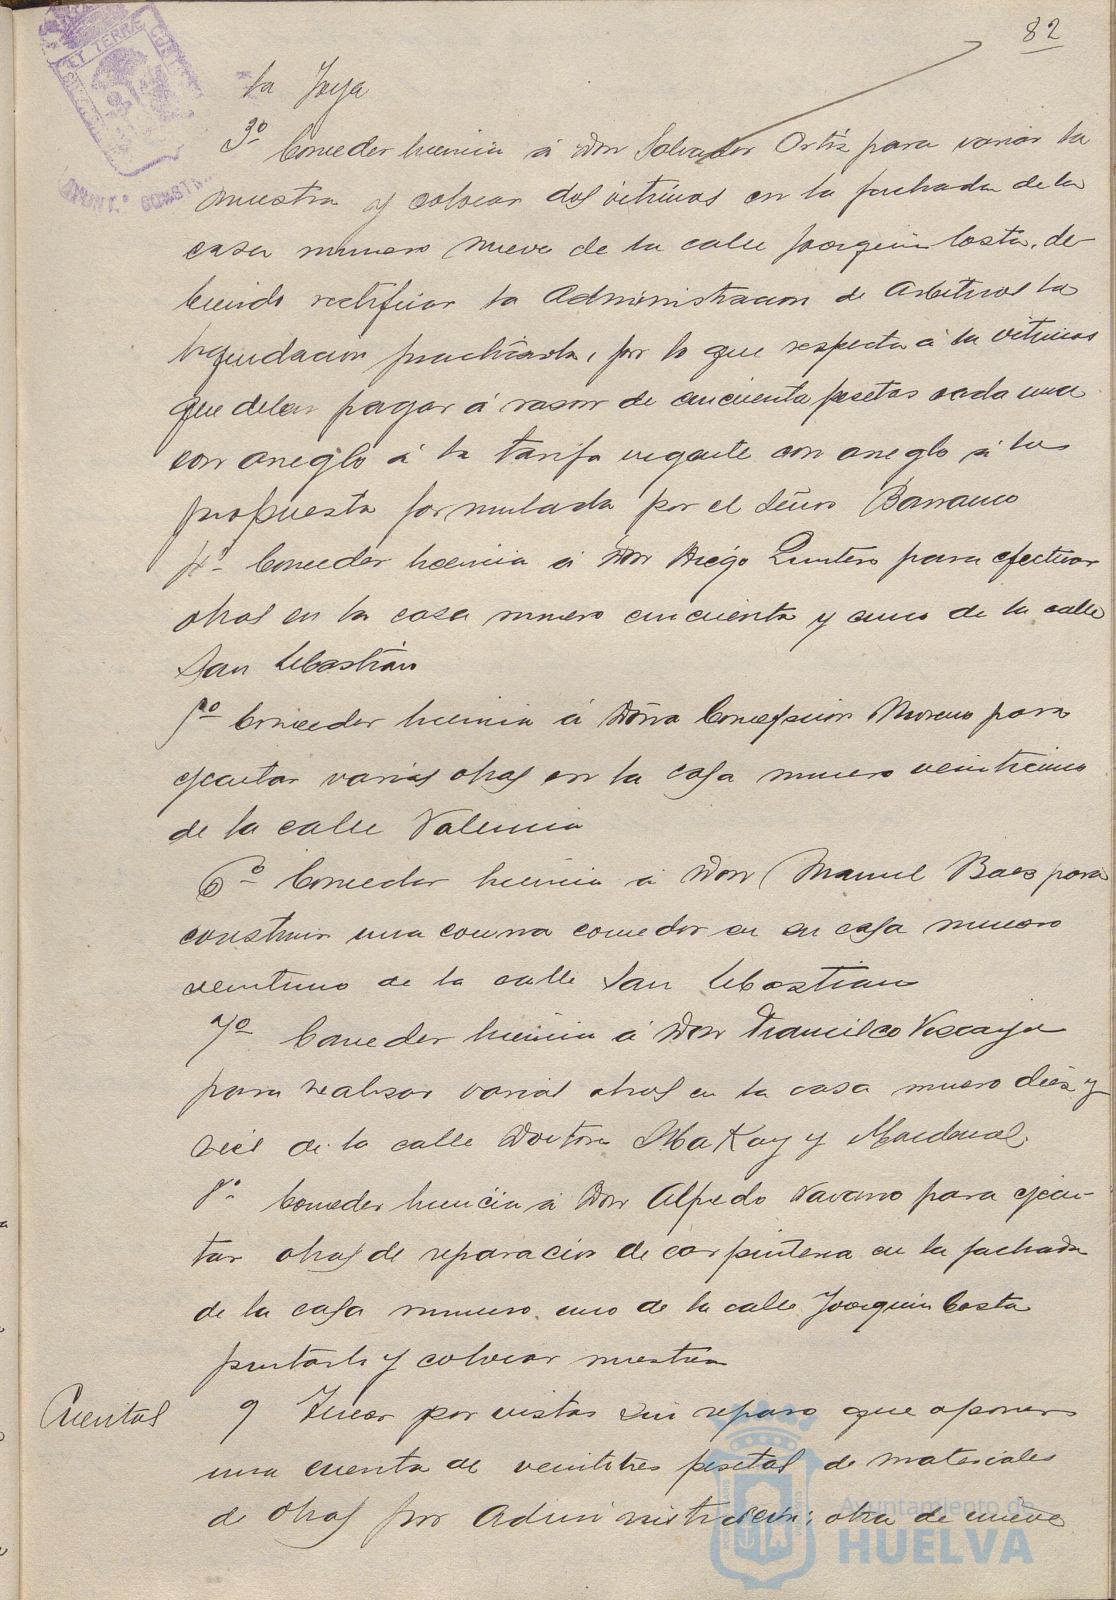 82
la Joya
3º Conceder licencia á Don Salvador Ortiz para variar la
muestra y colocar dos vitrinas en la fachada de la
casa numero nueve de la calle Joaquin Costa, de-
biendo rectificar la Administracion de Arbitrios la
liquidacion practicada, por lo que respecta á la vitrinas
que deben pagar á razon de cincuenta pesetas cada una
con arreglo á la tarifa vigente con arreglo á la
propuesta formulada por el Señor Barranco
4º Conceder licencia á Don Diego Quintero para efectuar
obras en la casa numero cincuenta y cinco de la calle
San Sebastián
5º Conceder licencia á Doña Concepcion Moreno para
ejecutar varias obras en la casa numero veinticinco
de la calle Valencia
6º Conceder licencia á Don Manuel Baez para
construir una cocina comedor en su casa numero
veintiuno de la calle San Sebastian
7º Conceder licencia á Don Francisco Vizcaya
para realizar varias obras en la casa numero diez y
seis de la calle Doctores Mackay y Macdonal.
8º Conceder licencia á Don Alfredo Navarro para ejecu-
tar obras de reparacion de carpinteria en la fachada
de la casa numero uno de la calle Joaquin Costa
pintarla y colocar muestra
Cuentas
9 Tener por vistas sin reparo que oponer
una cuenta de veintitres pesetas de materiales
de obras por Administración; otra de nueve
Ayuntamiento de
HUELVA